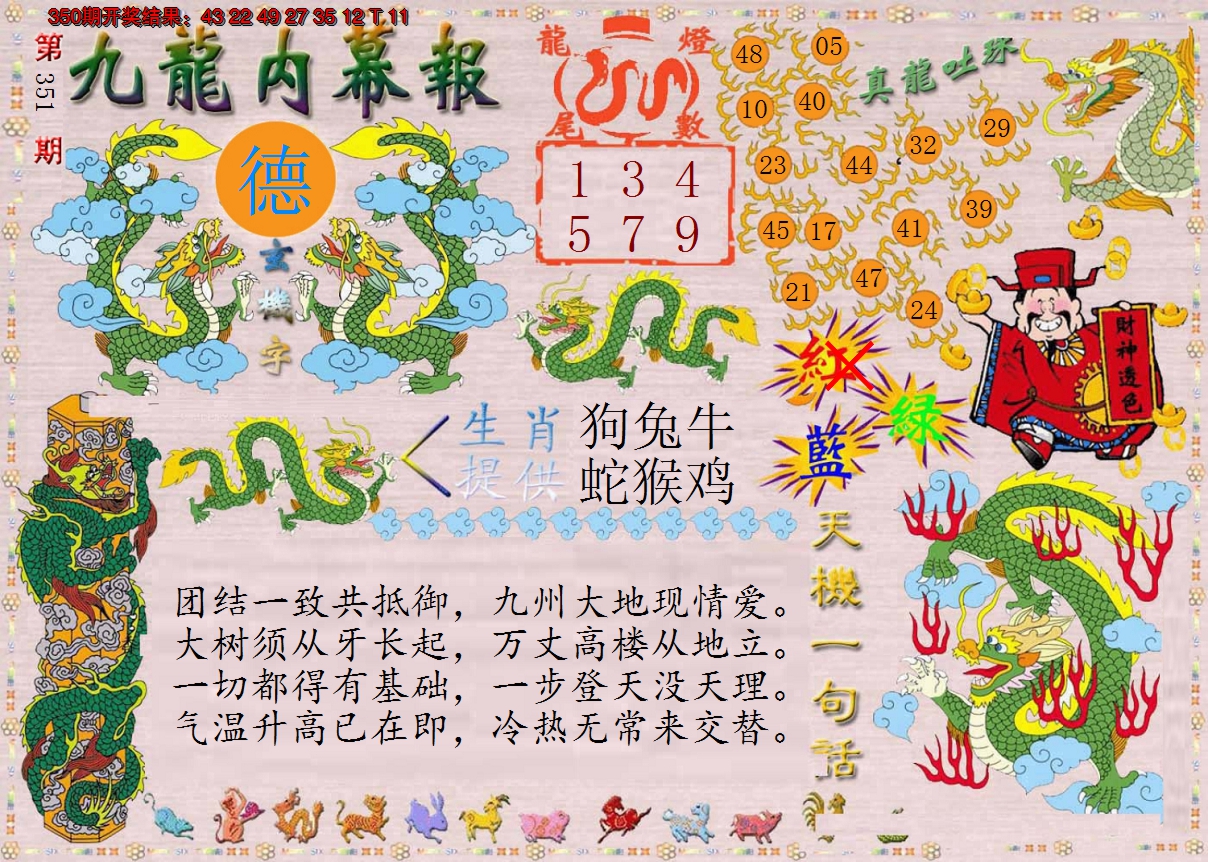 350期开奖结果：43 22 49 27 35 12 T 11
第351期
九龍内幕報
德
玄機字
龍燈
尾數
1 3 4
5 7 9
真龍吐珠
48 05
10 40
23 44 32 29
45 17 41 39
21 47 24
財神透色
紅
綠
藍
生肖
提供
狗兔牛
蛇猴鸡
天機一句话
团结一致共抵御，九州大地现情爱。
大树须从牙长起，万丈高楼从地立。
一切都得有基础，一步登天没天理。
气温升高已在即，冷热无常来交替。